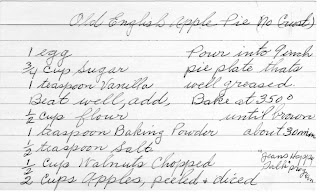 Old English Apple Pie (No Crust)
1 egg
3/4 cup Sugar
1 teaspoon Vanilla
Beat well, add,
1/2 cup flour
1 teaspoon Baking Powder
1/2 teaspoon Salt
1/2 cup Walnuts Chopped
2 cups Apples, peeled & diced
Pour into 9 inch
pie plate thats
well greased
Bake at 350°
until brown
about 30 min